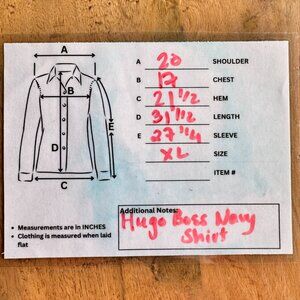 A 20 SHOULDER
B 17 CHEST
C 21 1/2 HEM
D 31 1/2 LENGTH
E 27 1/4 SLEEVE
XL SIZE
ITEM #
A
B
E
D
C
• Measurements are in INCHES
• Clothing is measured when laid
flat
Additional Notes:
Hugo Boss Navy
Shirt